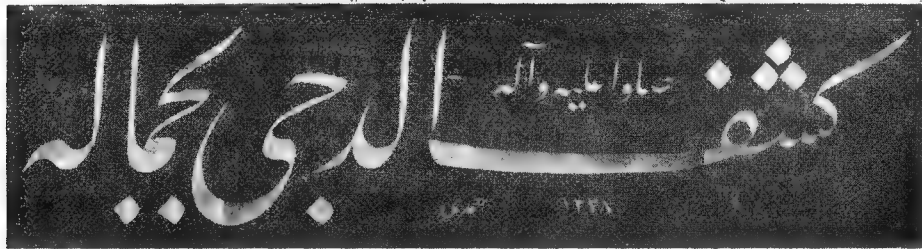 كشف الدجى بجماله
صلوا عليه وآله